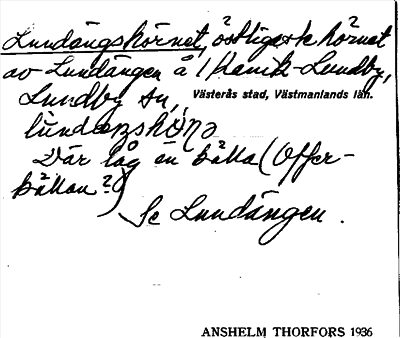 Lundängshörnet, östligaste hörnet
av Lundängen å Hamik-Lundby,
Lundby sn, Västerås stad, Västmanlands län.
lùndæŋshö̀ṇə
Där låg en källa (Offer-
källan?)
Se Lundängen.
ANSHELM THORFORS 1936